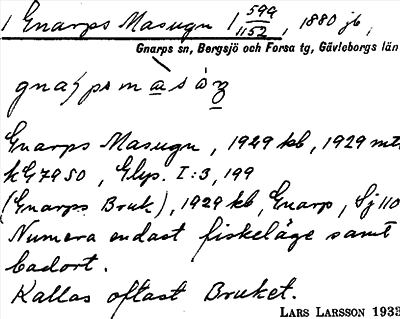 1 Gnarps Masugn 1 599/1152, 1880 jb,
Gnarps sn, Bergsjö och Forsa tg, Gävleborgs län
Gnarps Masugn, 1929 kb, 1929 mtl
k G7950, Glys. I:3, 199
(Gnarps Bruk), 1929 kb, Gnarp, Sj 110
Numera endast fiskeläge samt
badort.
Kallas oftast Bruket.
LARS LARSSON 1933